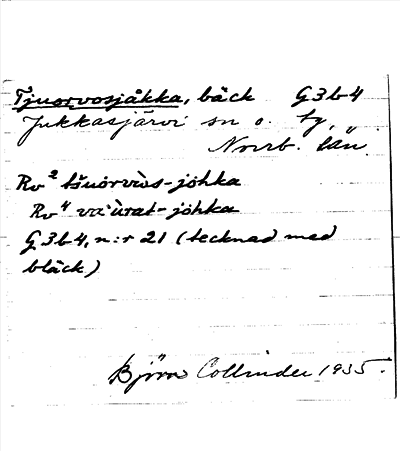 Tjuorvosjåkka, bäck G3b4
Jukkasjärvi sn o. tg,
Norrb. län.
Rv² tšuorvùs-jóhka
Rv⁴ va'ùrat-jóhka
G3b4, n:r 21 (tecknad med
bläck)
Björn Collinder 1935.